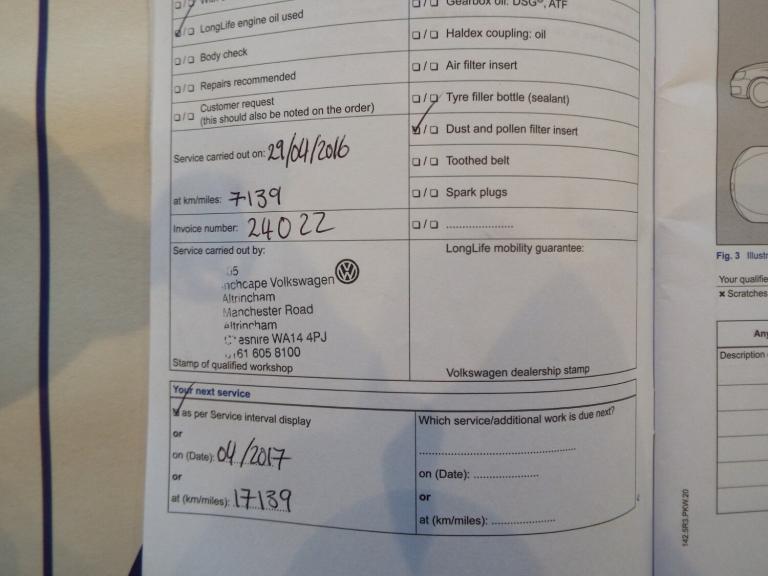 LongLife engine oil used
Body check
Repairs recommended
Customer request
(this should also be noted on the order)
Service carried out on: 29/04/2016
at km/miles: 7139
Invoice number: 24022
Service carried out by:
Volkswagen
Altrincham
Manchester Road
Altrincham
WA14 4PJ
61 605 8100
Stamp of qualified workshop
Gearbox oil: DSG®, ATF
Haldex coupling: oil
Air filter insert
Tyre filler bottle (sealant)
Dust and pollen filter insert
Toothed belt
Spark plugs
LongLife mobility guarantee:
Volkswagen dealership stamp
Your next service
as per Service interval display
or
on (Date): 04/2017
or
at (km/miles): 17139
Which service/additional work is due next?
on (Date):
or
at (km/miles):
142.5R3.PKW.20
Fig. 3 Illust
Your qualifie
× Scratches
Any
Description